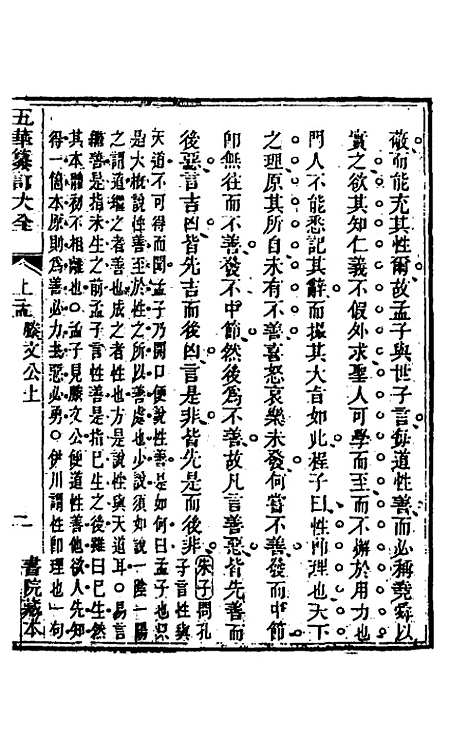 敬而能充其性爾故孟子與世子言每道性善而必稱堯舜以
實之欲其知仁義不假外求聖人可學而至而不懈於用力也
門人不能悉記其辭而撮其大旨如此程子曰性卽理也天下
之理原其所自未有不善喜怒哀樂未發何嘗不善發而中節
卽無往而不善發不中節然後爲不善故凡言善惡皆先善而
後惡言吉凶皆先吉而後凶言是非皆先是而後非
朱子問孔
子言性與
天道不可得而聞孟子乃開口便說性善是如何曰孟子也只
是大槪說性善至於性之所以善處也少說須如說一陰一陽
之謂道繼之者善也成之者性也方是說性與天道耳○易言
繼善是指未生之前孟子言性善是指已生之後雖曰已生然
其本體初不相離也○孟子見滕文公便道性善他欲人先知
得一個本原則爲善必力去惡必勇○伊川謂性卽理也一句
五華纂訂大全
上孟
滕文公上
二
書院藏本